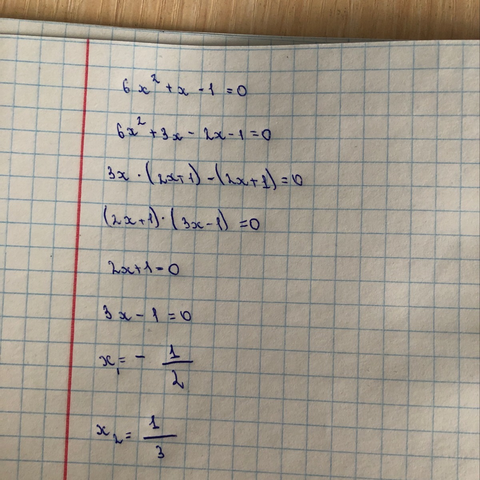 6x² + x - 1 = 0
6x² + 3x - 2x - 1 = 0
3x · (2x+1) - (2x+1) = 0
(2x+1) · (3x-1) = 0
2x+1 = 0
3x - 1 = 0
x₁ = - 1/2
x₂ = 1/3